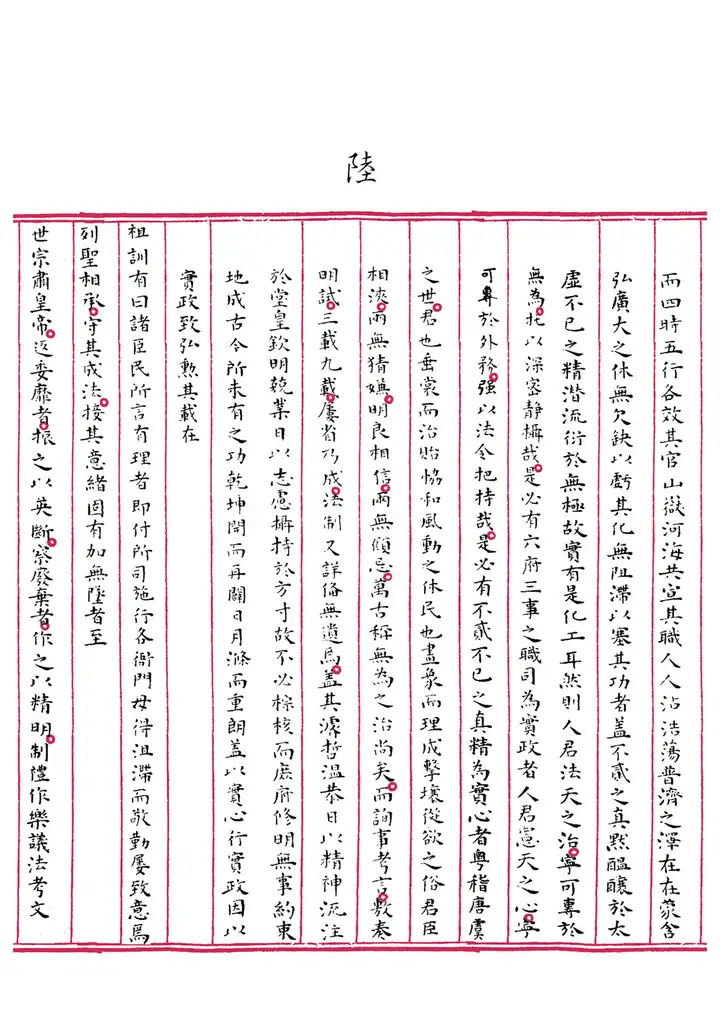 陸
而四時五行各效其官山嶽河海共宣其職人人沾浩蕩普濟之澤在在蒙含
弘廣大之休無欠缺以虧其化無阻滯以塞其功者蓋不貳之真默醞釀於太
虛不已之精潛流衍於無極故實有是化工耳然則人君法天之治寧可專於
無為托以深宮靜攝哉是必有六府三事之職司為實政者人君憲天之心寧
可專於外務強以法令把持哉是必有不貳不已之真精為實心者粵稽唐虞
之世君也垂裳而治貽恊和風動之休民也畫象而理成擊壤從欲之俗君臣
相浹兩無猜嫌明良相信兩無傾忌萬古稱無為之治尚矣而詢事考言敷奏
明試三載九載屢省乃成法制又詳俻無遺焉蓋其濬哲溫恭日以精神流注
於堂皇欽明兢業日以志慮攝持於方寸故不必綜核而庶府修明無事約束
地成古今所未有之功乾坤開而再闢日月滌而重朗蓋以實心行實政因以
實政致弘勲其載在
祖訓有曰諸臣民所言有理者即付所司施行各衙門毋得沮滯而敬勤屢致意焉
列聖相承守其成法接其意緒固有加無墜者至
世宗肅皇帝返委靡者振之以英斷察廢棄者作之以精明制禮作樂議法考文